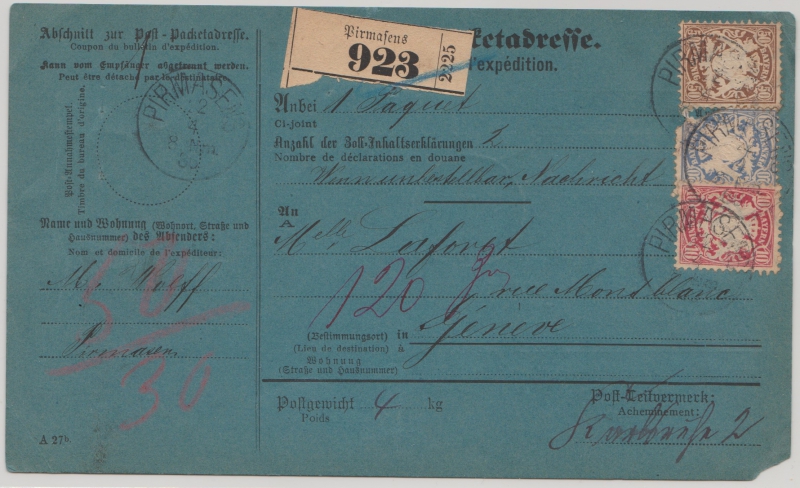 Abschnitt zur Post-Packetadresse.
Coupon du bulletin d'expédition.
Kann vom Empfänger abgetrennt werden.
Peut être détaché par le destinataire.
PIRMASENS
2
8
Post-Annahmestempel.
Timbre du bureau d'origine.
Name und Wohnung (Wohnort, Straße und
Hausnummer) des Absenders:
Nom et domicile de l'expéditeur:
Wolff
Pirmasens
36
A 27b
Pirmasens
923
2225
cketadresse.
l'expédition.
Anbei 1 Paquet
Ci-joint
Anzahl der Zoll-Inhaltserklärungen 2
Nombre de déclarations en douane
Wenn unbestellbar, Nachricht
An
A
Melle Laforet
120
rue Montblanc
(Bestimmungsort) in Génève
(Lieu de destination) à
Wohnung
(Straße und Hausnummer)
Postgewicht 4 kg
Poids
Post-Leitvermerk:
Acheminement:
Karlsruhe 2
PIRMASENS
BAYERN
PIRMASENS